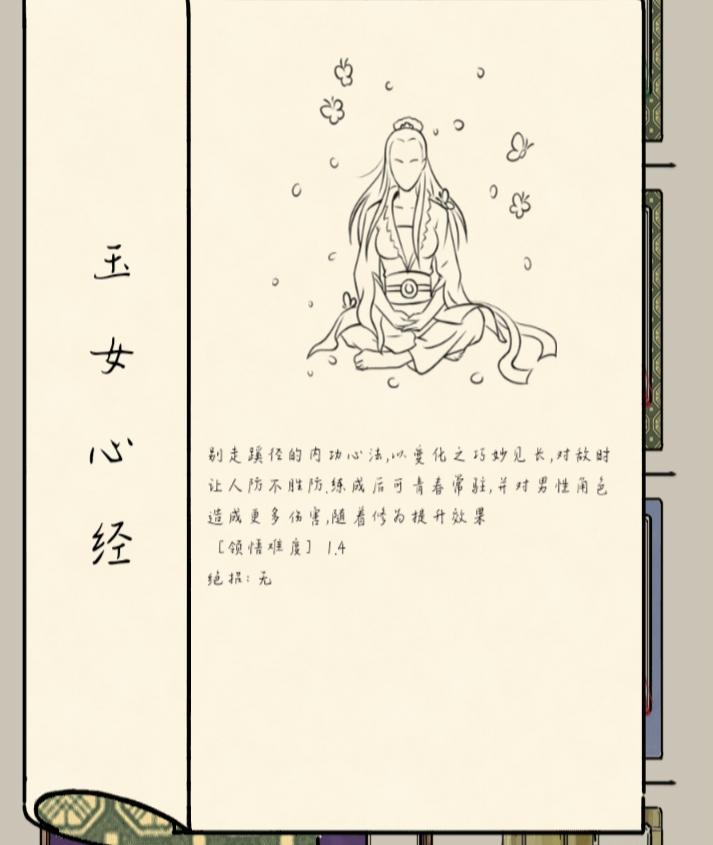 玉女心经
别走蹊径的内功心法,以变化之巧妙见长,对敌时
让人防不胜防.练成后可青春常驻,并对男性角色
造成更多伤害,随着修为提升效果
[领悟难度] 1.4
绝招:无